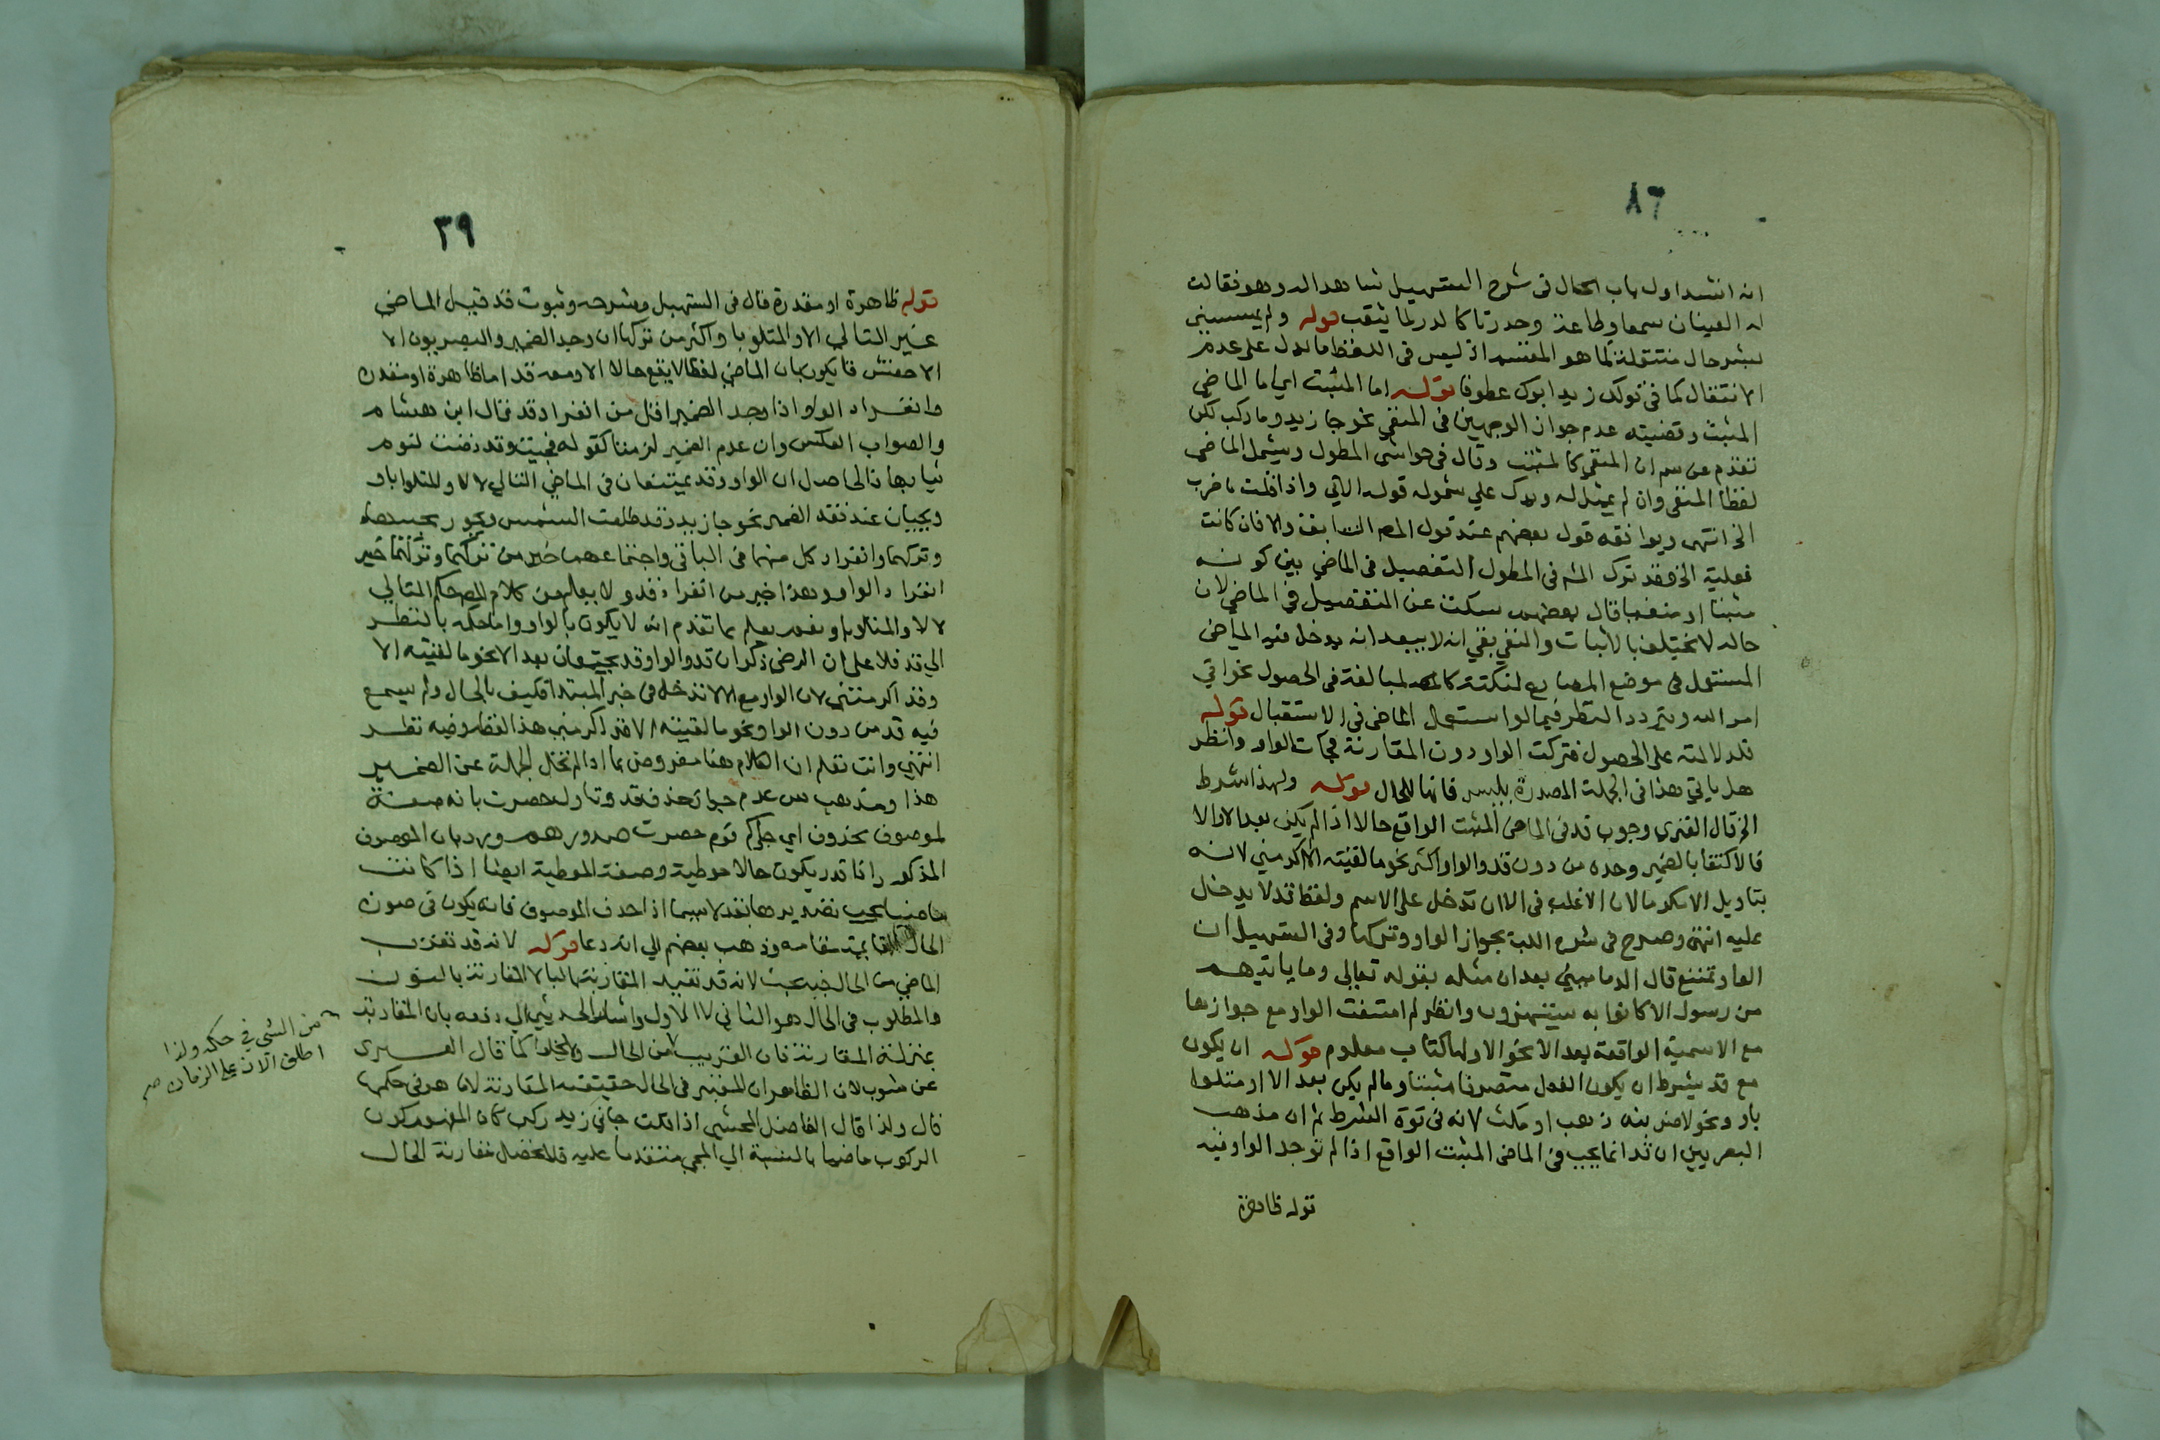 ٨٦
انه انشد اول باب الحال فى شرح التسهيل شاهدا له وهو فقالت
له العينان سمعا وطاعة وحدرتا كالدر لما يثقب قوله ولم يمسسنى
بشر حال منتقلة لما هو المفسد اذ ليس فى اللفظ ما يدل على عدم
الانتقال كما فى قولك زيد ابوك عطوفا قوله اما المثبت اي اما الماضي
المثبت وقضيته عدم جواز الوجهين في المنفي نحو جا زيد وما ركب لكن
تقدم عن سم ان المنفي كالمثبت وقال في حواشى المطول ويشمل الماضي
لفظا المنفى وان لم يمثل له ويدل علي شموله قوله الاتي واذا قلت ما ضرب
الخ انتهى ويوافقه قول بعضهم عند قول المص السابق والا فان كانت
فعلية الخ فقد ترك المص فى المطول التفصيل فى الماضي بين كونه
مثبتا او منفيا قال بعضهم سكت عن التفصيل في الماضي لان
حاله لا يختلف بالاثبات والنفي بقي انه لا يبعد ان يدخل فيه الماضى
المستعمل في موضع المضارع لنكتة كالمبالغة فى الحصول نحو اتي
امر الله ويتردد النظر فيما لو استعمل الماضى فى الاستقبال قوله
فلدلالته على الحصول فتركت الواو دون المقارنة فجات الواو وانظر
هل ياتي هذا فى الجملة المصدرة بليس فانها للحال قوله ولهذا شرط
الخ قال الفنرى وجوب قد فى الماضى المثبت الواقع حالا اذا لم يكن بعد الا والا
فالاكتفا بالضمير وحده من دون قد والواو اكثر نحو ما لقيته الا اكرمنى لانه
بتاويل الا مكرما لان الاغلب فى الا ان تدخل على الاسم ولفظ قد لا يدخل
عليه انتهى وصرح في شرح اللب بجواز الواو وتركها وفى التسهيل ان
الواو تمتنع قال الدمامينى بعد ان مثله بقوله تعالى وما ياتيهم
من رسول الا كانوا به يستهزون وانظر لم امتنعت الواو مع جوازها
مع الاسمية الواقعة بعد الا نحو الا ولها كتاب معلوم قوله ان يكون
مع قد يشرط ان يكون الفعل متصرفا مثبتا وما لم يكن بعد الا او متلوا
باو ونحو لاضربنه ذهب او مكث لانه فى قوة الشرط ثم ان مذهب
البصريين ان قد انما يجب فى الماضى المثبت الواقع اذا لم توجد الواو فيه
قوله ظاهرة
٣٩
قوله ظاهرة او مقدرة قال فى التسهيل وشرحه وثبوت قد قبل الماضي
غير التالي الا والمتلو باو اكثر من تركها ان وجد الضمير والبصريون الا
الاخفش قايلون بان الماضي لفظا لا يقع حالا الا ومعه قد اما ظاهرة او مقدرة
وانفراد الواو اذا وجد الضمير اقل من انفراد قد قال ابن هشام
والصواب العكس وان عدم الضمير لزمتا كقوله فجيت وقد نضت لنوم
ثيابها فالحاصل ان الواو وقد يمتنعان فى الماضي التالي لالا والمتلو باو
ويجبان عند فقد الضمير نحو جا زيد وقد طلعت الشمس ويجوز
وتركهما وانفراد كل منهما فى الباقى واجتماعهما خير من تركهما وتركهما خير
انفراد الواو وهذا خير من انفراد قد ولا يعلم من كلام المص حكم التالي
لالا والمتلو باو نعم يعلم مما تقدم انه لا يكون بالواو واما حكمه بالنظر
الي قد فلا على ان الرضى ذكر ان قد والواو قد يجتمعان بعد الا نحو ما لقيته الا
وقد اكرمتني لان الواو مع الا لا تدخل فى خبر المبتدا فكيف بالحال ولم يسمع
فيه قد من دون الواو نحو ما لقيته الا قد اكرمني هذا لفظه وفيه نظر
انتهي وانت تعلم ان الكلام هنا مفروض بما اذا لم تخل الجملة عن الضمير
هذا ومذهب س عدم جواز حذف قد وتاول حصرت بانه صفة
لموصوف محذوف اي جاؤكم قوم حصرت صدورهم ورد بان الموصوف
المذكور انما قد يكون حالا موطية وصفة الموطية ايضا اذا كانت
ماضيا يجب تصديرها بقد لاسيما اذا حذف الموصوف فانه يكون فى صورة
الحال القايمة مقامه وذهب بعضهم الي انه دعا قوله لانه قد تقرب
الماضي من الحال فيه بحث لانه قد تفيد المقاربة بالبا لا المقارنة بالنون
والمطلوب فى الحال هو الثانى لا الاول واشار المحشي الى دفعه بان المقاربة
بمنزلة المقارنة فان القريب من الحال كما قال العبرى
عن مطلوب لان الظاهر ان للمعتبر فى الحال حقيقة المقارنة لا ما هو فى حكمها
قال ولذا قال الفاضل المحشي اذا قلت جاني زيد ركب كان المفهوم كون
الركوب ماضيا بالنسبة الي المجي متقدما عليه فلا تحصل مقارنة الحال
من الشي في حكمه ولذا
اطلق الآن على الزمان صح